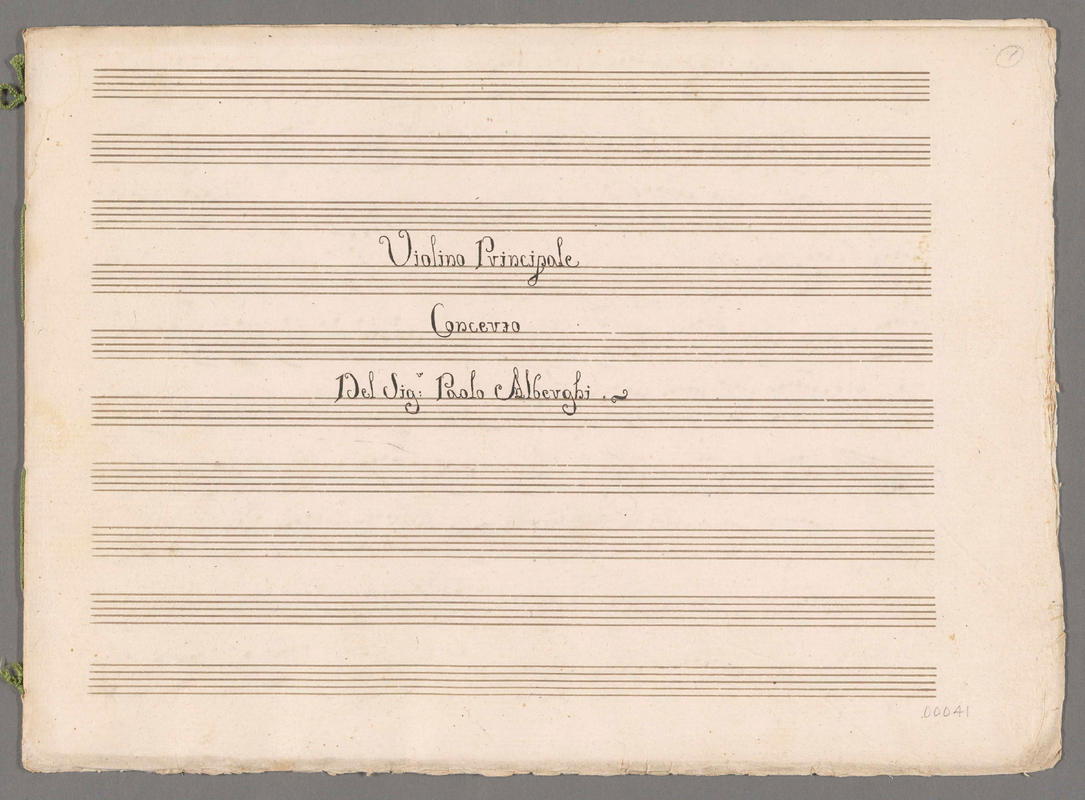 1
Violino Principale
Concerto
Del Sig.r Paolo Alberghi.
00041